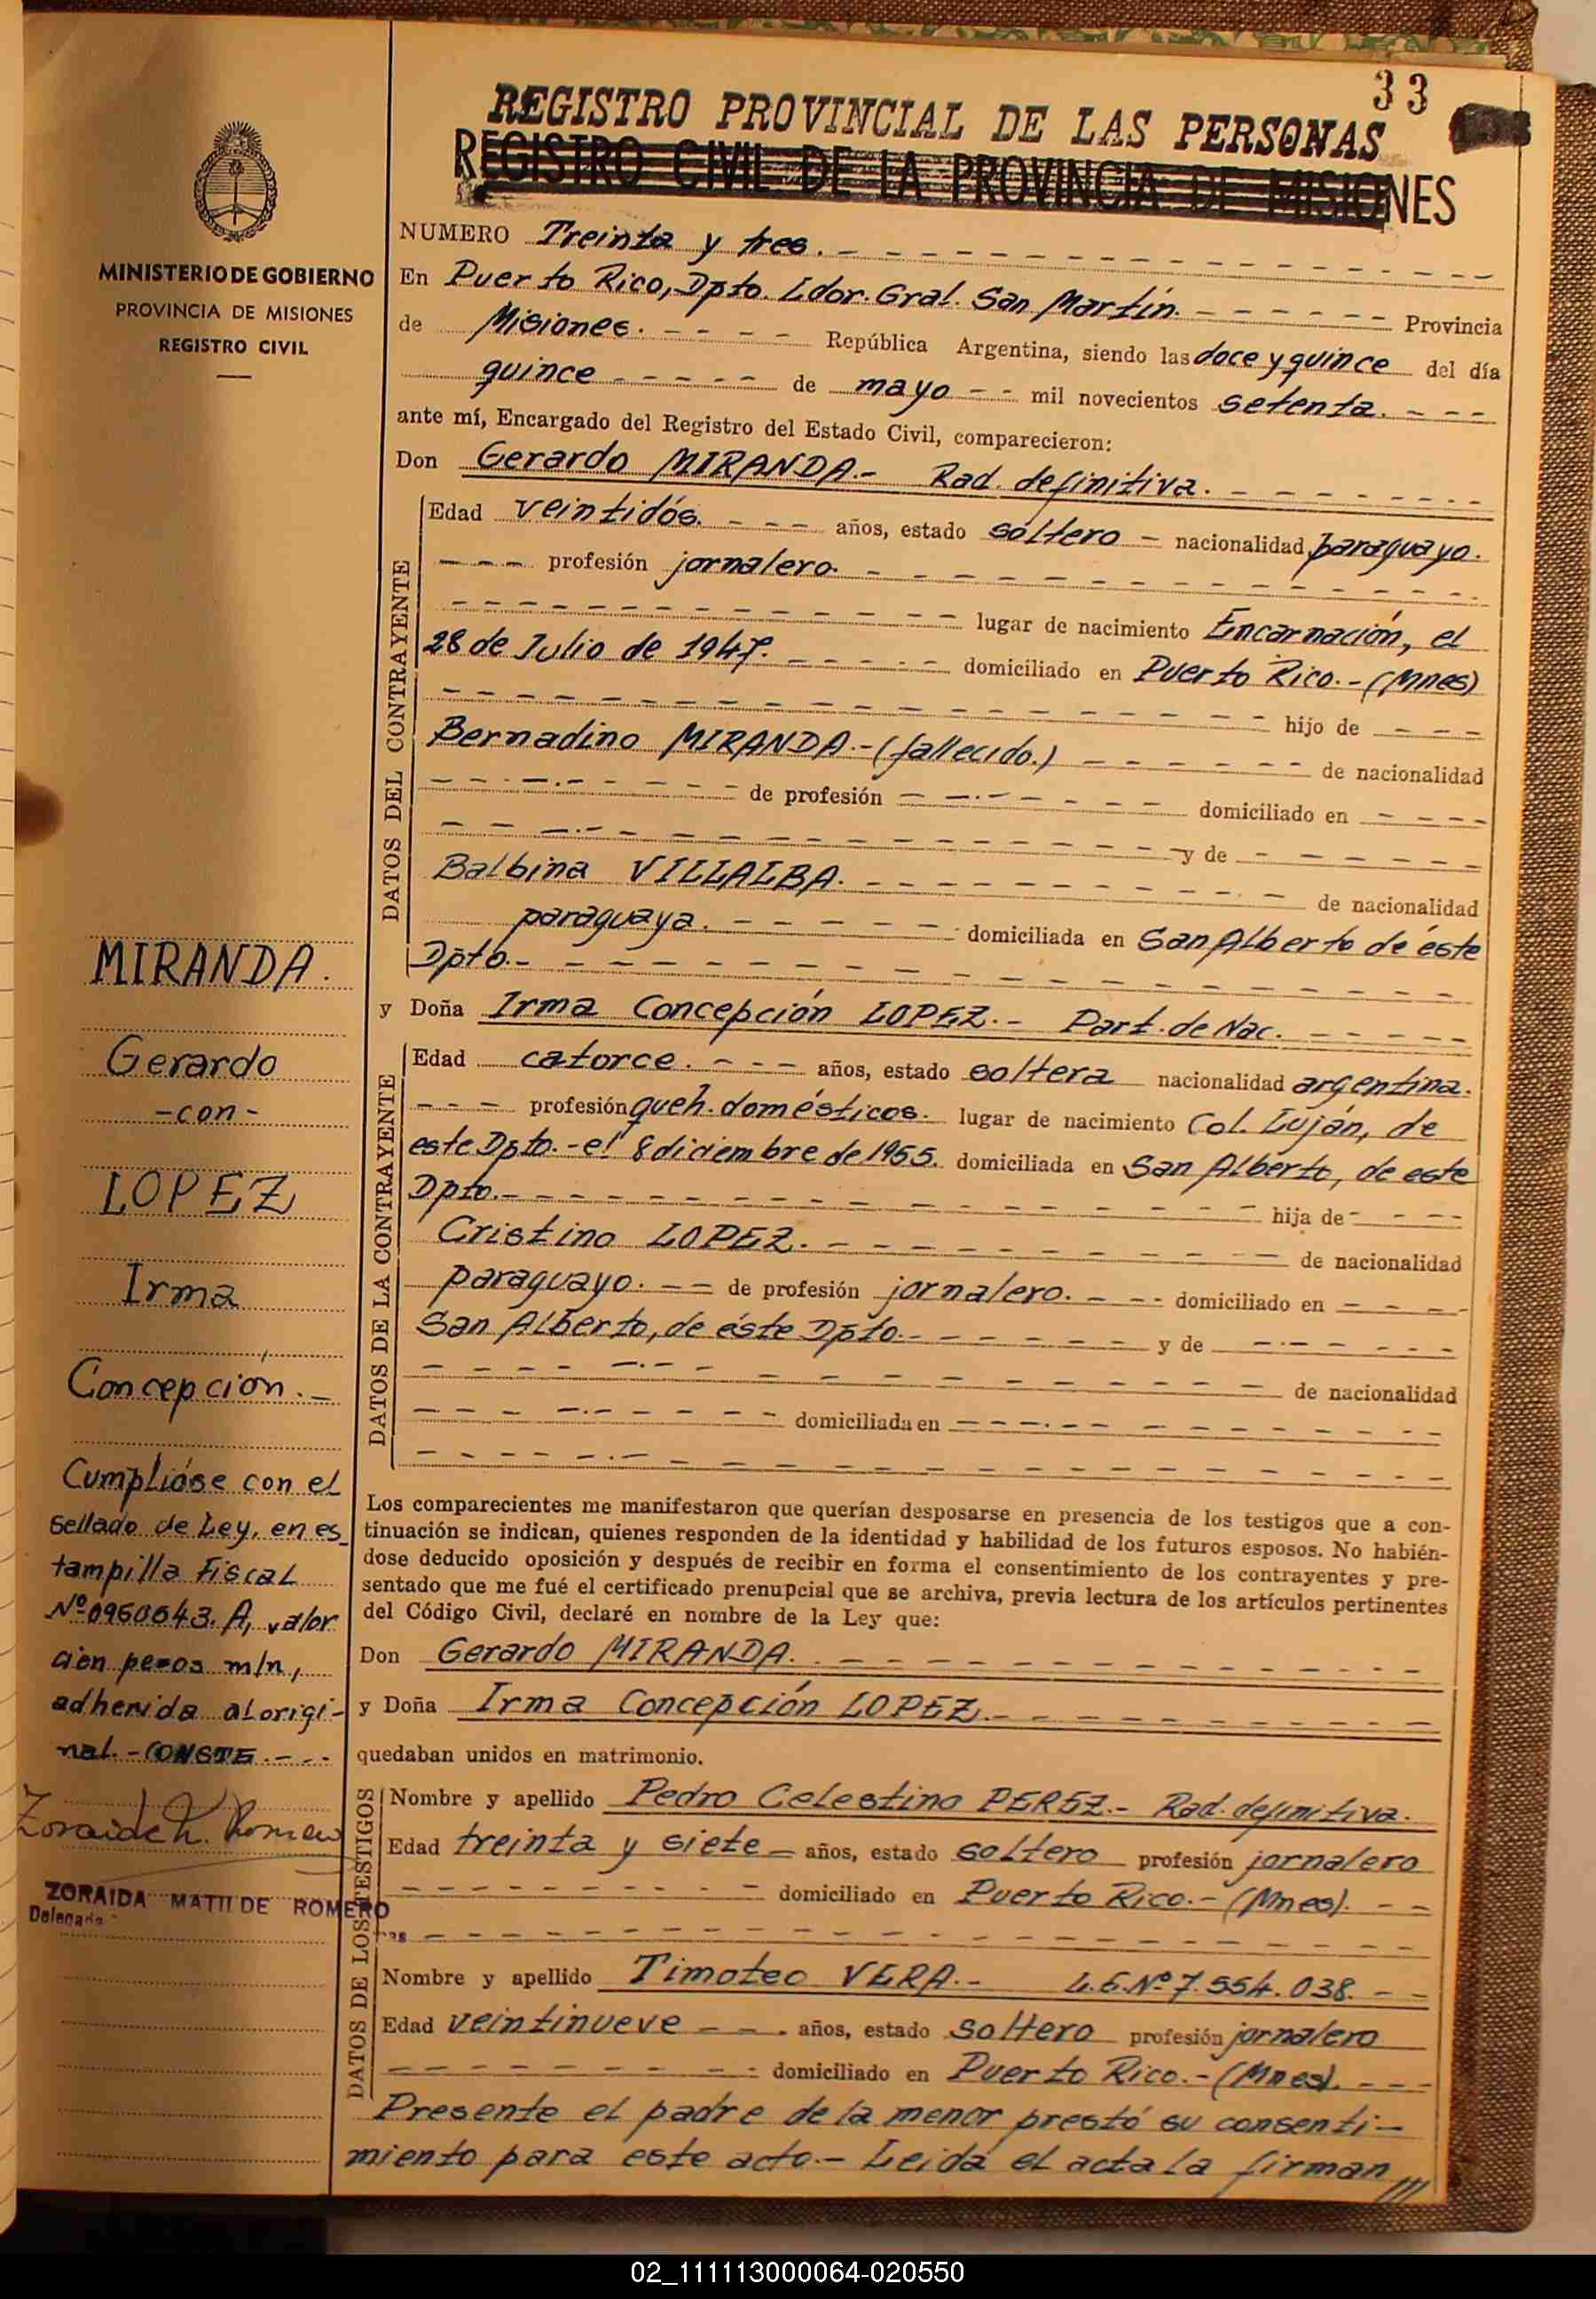 33
REGISTRO PROVINCIAL DE LAS PERSONAS
REGISTRO CIVIL DE LA PROVINCIA DE MISIONES
MINISTERIO DE GOBIERNO
PROVINCIA DE MISIONES
REGISTRO CIVIL
NUMERO Treinta y tres.
En Puerto Rico, Dpto. Ldor. Gral. San Martín. Provincia
de Misiones. República Argentina, siendo las doce y quince del día
quince de mayo mil novecientos setenta.
ante mí, Encargado del Registro del Estado Civil, comparecieron:
Don Gerardo MIRANDA.- Rad. definitiva.
DATOS DEL CONTRAYENTE
Edad veintidós. años, estado soltero nacionalidad paraguayo.
profesión jornalero.
lugar de nacimiento Encarnación, el
28 de Julio de 1947. domiciliado en Puerto Rico.- (Mnes)
hijo de
Bernadino MIRANDA.- (fallecido.) de nacionalidad
de profesión domiciliado en
y de
Balbina VILLALBA. de nacionalidad
paraguaya. domiciliada en San Alberto de éste
Dpto.-
y Doña Irma Concepción LOPEZ.- Part. de Nac.
DATOS DE LA CONTRAYENTE
Edad catorce. años, estado soltera nacionalidad argentina.
profesión queh. domésticos. lugar de nacimiento Col. Luján, de
este Dpto.- el 8 diciembre de 1955. domiciliada en San Alberto, de este
Dpto.- hija de
Cristino LOPEZ. de nacionalidad
paraguayo. de profesión jornalero. domiciliado en
San Alberto, de éste Dpto.- y de
de nacionalidad
domiciliada en
Los comparecientes me manifestaron que querían desposarse en presencia de los testigos que a con-
tinuación se indican, quienes responden de la identidad y habilidad de los futuros esposos. No habién-
dose deducido oposición y después de recibir en forma el consentimiento de los contrayentes y pre-
sentado que me fué el certificado prenupcial que se archiva, previa lectura de los artículos pertinentes
del Código Civil, declaré en nombre de la Ley que:
Don Gerardo MIRANDA.
y Doña Irma Concepción LOPEZ.-
quedaban unidos en matrimonio.
DATOS DE LOS TESTIGOS
Nombre y apellido Pedro Celestino PEREZ.- Rad. definitiva.
Edad treinta y siete años, estado soltero profesión jornalero
domiciliado en Puerto Rico.- (Mnes).
Nombre y apellido Timoteo VERA.- L.E.Nº 7.554.038.
Edad veintinueve años, estado soltero profesión jornalero
domiciliado en Puerto Rico.- (Mnes).
Presente el padre de la menor prestó su consenti-
miento para este acto.- Leida el acta la firman ///
MIRANDA.
Gerardo
-con-
LOPEZ
Irma
Concepción.-
Cumplióse con el
sellado de Ley, en es_
tampilla Fiscal
Nº 0960643. A, valor
cien pesos m/n,
adherida al origi-
nal.- CONSTE.-
ZORAIDA MATILDE ROMERO
Delegada
02_111113000064-020550